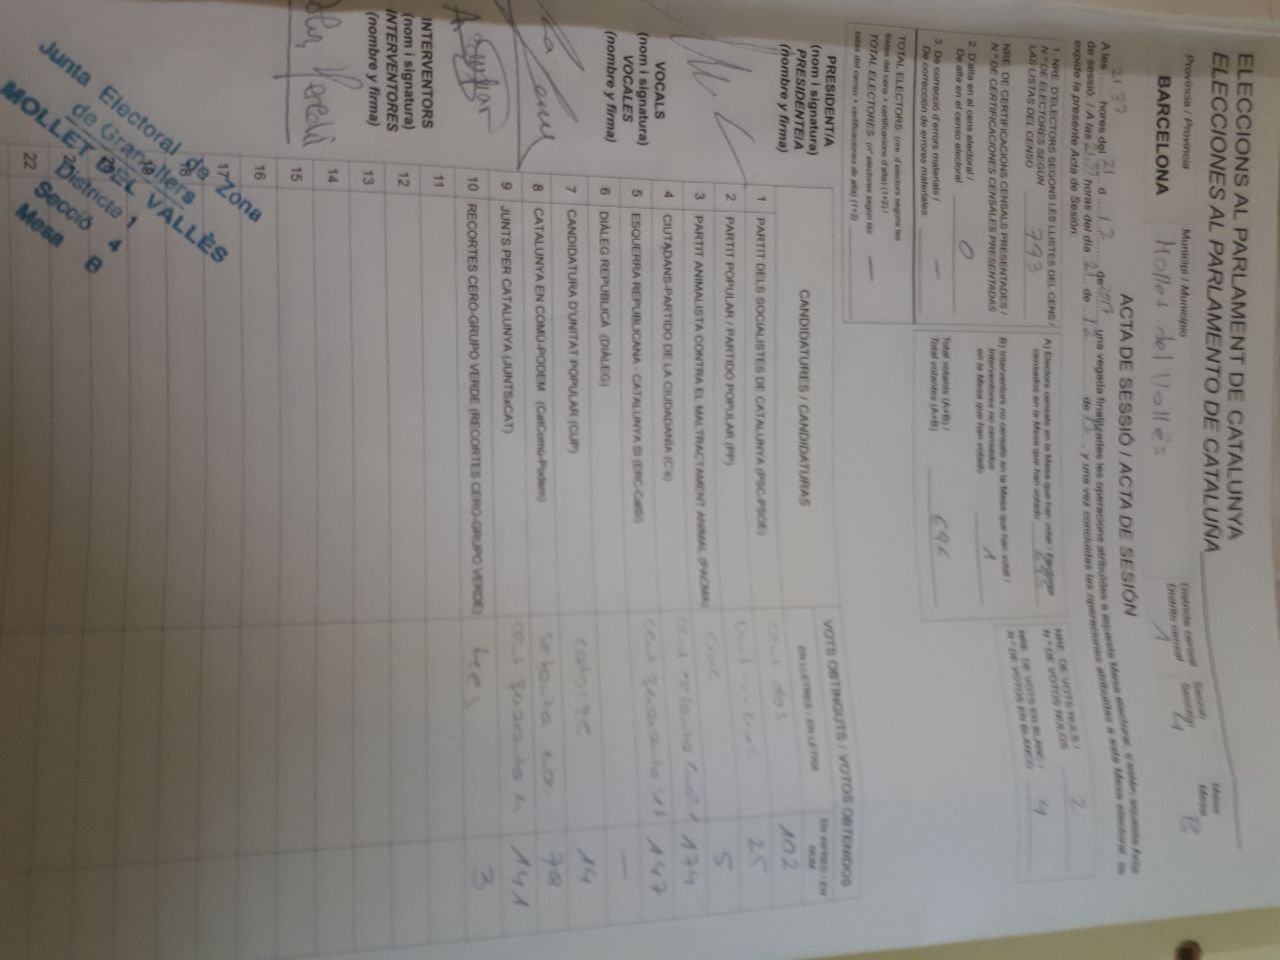 ELECCIONS AL PARLAMENT DE CATALUNYA
ELECCIONES AL PARLAMENTO DE CATALUÑA
Província / Provincia
BARCELONA
Municipi / Municipio
Mollet del Vallès
Districte censal
Distrito censal
1
Secció
Sección
4
Mesa
Mesa
B
ACTA DE SESSIÓ / ACTA DE SESIÓN
A les 21:37 hores del 21 d 12 de 2017 una vegada finalitzades les operacions atribuïdes a aquesta Mesa electoral, s'estén aquesta Acta
de sessió / A las horas del día 21 de 12 de y una vez concluidas las operaciones atribuidas a esta Mesa electoral, se
expide la presente Acta de Sesión:
1. NRE. D'ELECTORS SEGONS LES LLISTES DEL CENS /
N.º DE ELECTORES SEGÚN
LAS LISTAS DEL CENSO 793
NRE. DE CERTIFICACIONS CENSALS PRESENTADES /
N.º DE CERTIFICACIONES CENSALES PRESENTADAS
2. D'alta en el cens electoral /
De alta en el censo electoral 0
3. De correcció d'errors materials /
De corrección de errores materiales —
TOTAL ELECTORS: (nre. d'electors segons les
llistes del cens + certificacions d'alta) (1+2) /
TOTAL ELECTORES: (nº electores según las
listas del censo + certificaciones de alta) (1+2) —
A) Electors censats en la Mesa que han votat / Electores
censados en la Mesa que han votado 695
B) Interventors no censats en la Mesa que han votat /
Interventores no censados
en la Mesa que han votado 1
Total votants (A+B) /
Total votantes (A+B) 696
NRE. DE VOTS NULS /
N.º DE VOTOS NULOS 2
NRE. DE VOTS EN BLANC /
N.º DE VOTOS EN BLANCO 4
PRESIDENT/A
(nom i signatura)
PRESIDENTE/A
(nombre y firma)
VOCALS
(nom i signatura)
VOCALES
(nombre y firma)
INTERVENTORS
(nom i signatura)
INTERVENTORES
(nombre y firma)
CANDIDATURES / CANDIDATURAS
VOTS OBTINGUTS / VOTOS OBTENIDOS
EN LLETRES / EN LETRA
EN XIFRES / EN NÚM.
1 PARTIT DELS SOCIALISTES DE CATALUNYA (PSC-PSOE) cent dos 102
2 PARTIT POPULAR / PARTIDO POPULAR (PP) vint-i-cinc 25
3 PARTIT ANIMALISTA CONTRA EL MALTRACTAMENT ANIMAL (PACMA) cinc 5
4 CIUTADANS-PARTIDO DE LA CIUDADANÍA (C's) cent 174
5 ESQUERRA REPUBLICANA - CATALUNYA SÍ (ERC-CatSí) cent quaranta set 147
6 DIÀLEG REPUBLICÀ (DIÀLEG) —
7 CANDIDATURA D'UNITAT POPULAR (CUP) catorze 14
8 CATALUNYA EN COMÚ-PODEM (CatComú-Podem) setanta
9 JUNTS PER CATALUNYA (JUNTSxCAT) cent quaranta 141
10 RECORTES CERO-GRUPO VERDE (RECORTES CERO-GRUPO VERDE) tres 3
11
12
13
14
15
16
17
22
Junta Electoral de Zona
de Granollers
MOLLET DEL VALLÈS
Districte 1
Secció 4
Mesa B